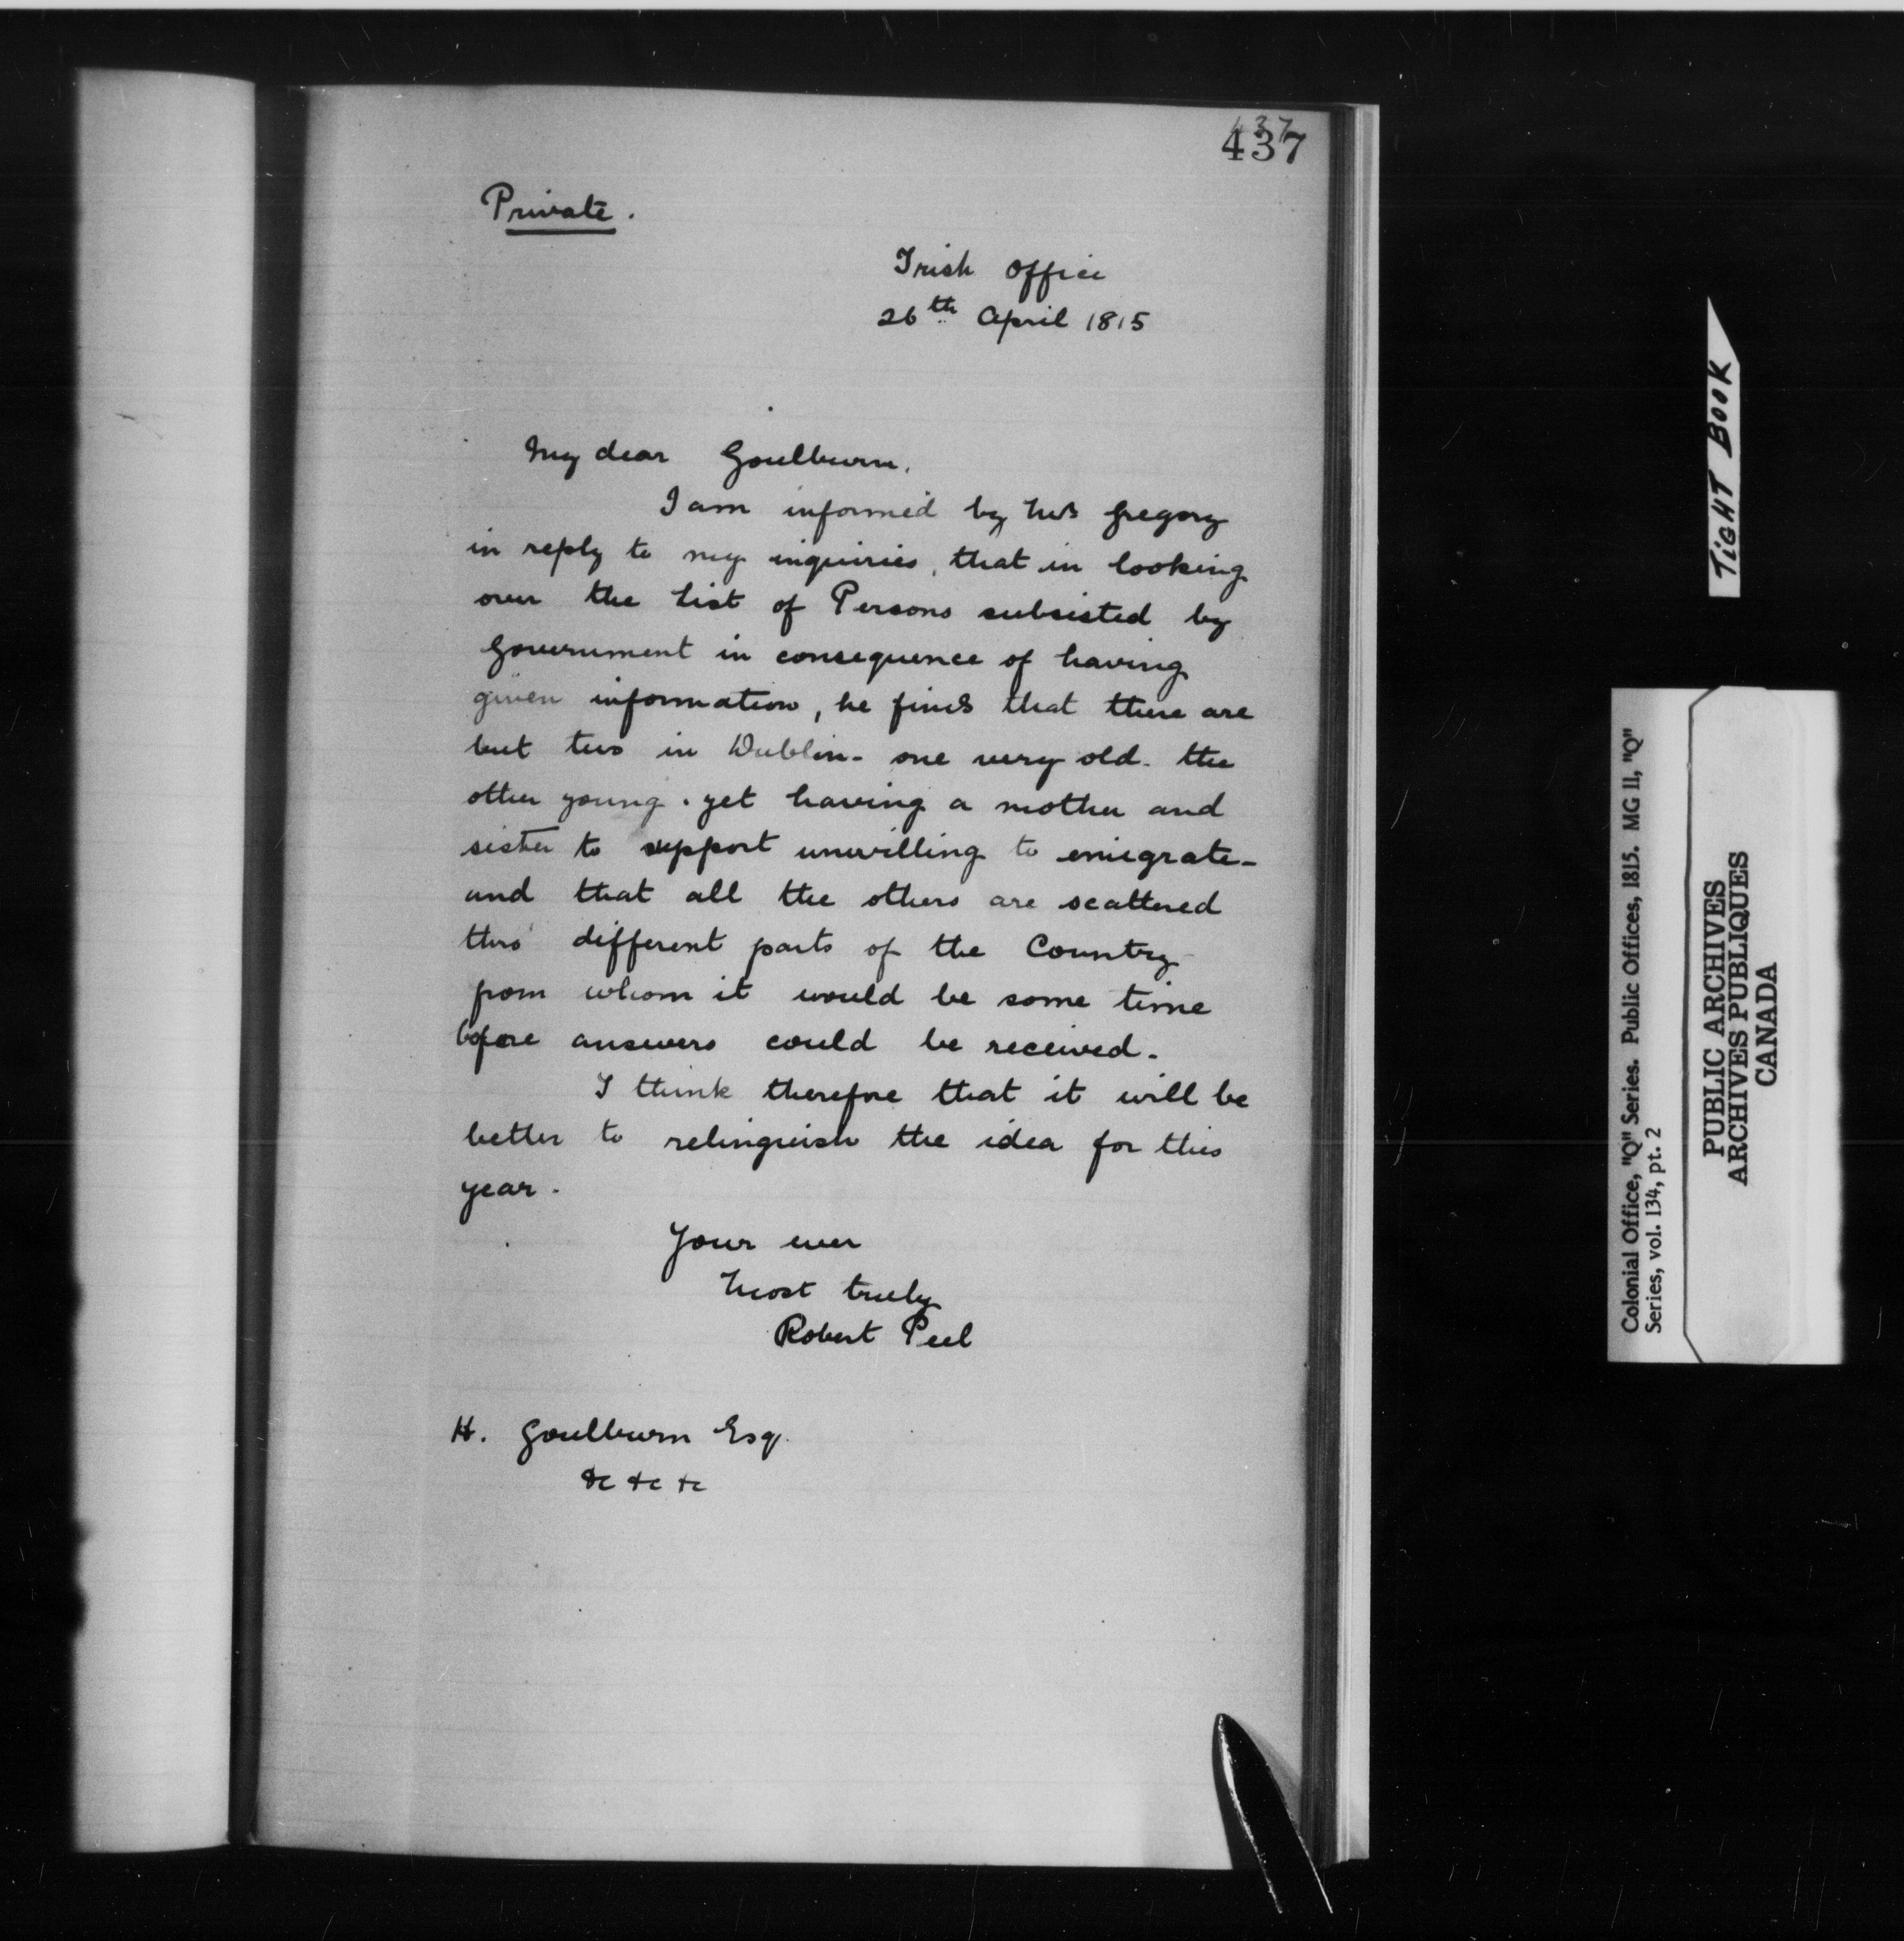 437
437
Private.
Irish Office
26th April 1815
My dear Goulburn,
I am informed by Mr Gregory
in reply to my inquiries, that in looking
over the List of Persons subsisted by
Government in consequence of having
given information, he finds that there are
but two in Dublin - one very old - the
other young. yet having a mother and
sister to support unwilling to emigrate -
and that all the others are scattered
thro' different parts of the Country
from whom it would be some time
before answers could be received.
I think therefore that it will be
better to relinquish the idea for this
year.
Your ever
Most truly
Robert Peel
H. Goulburn Esq.
&c &c &c
TIGHT BOOK
Colonial Office, "Q" Series. Public Offices, 1815. MG 11, "Q"
Series, vol. 134, pt. 2
PUBLIC ARCHIVES
ARCHIVES PUBLIQUES
CANADA